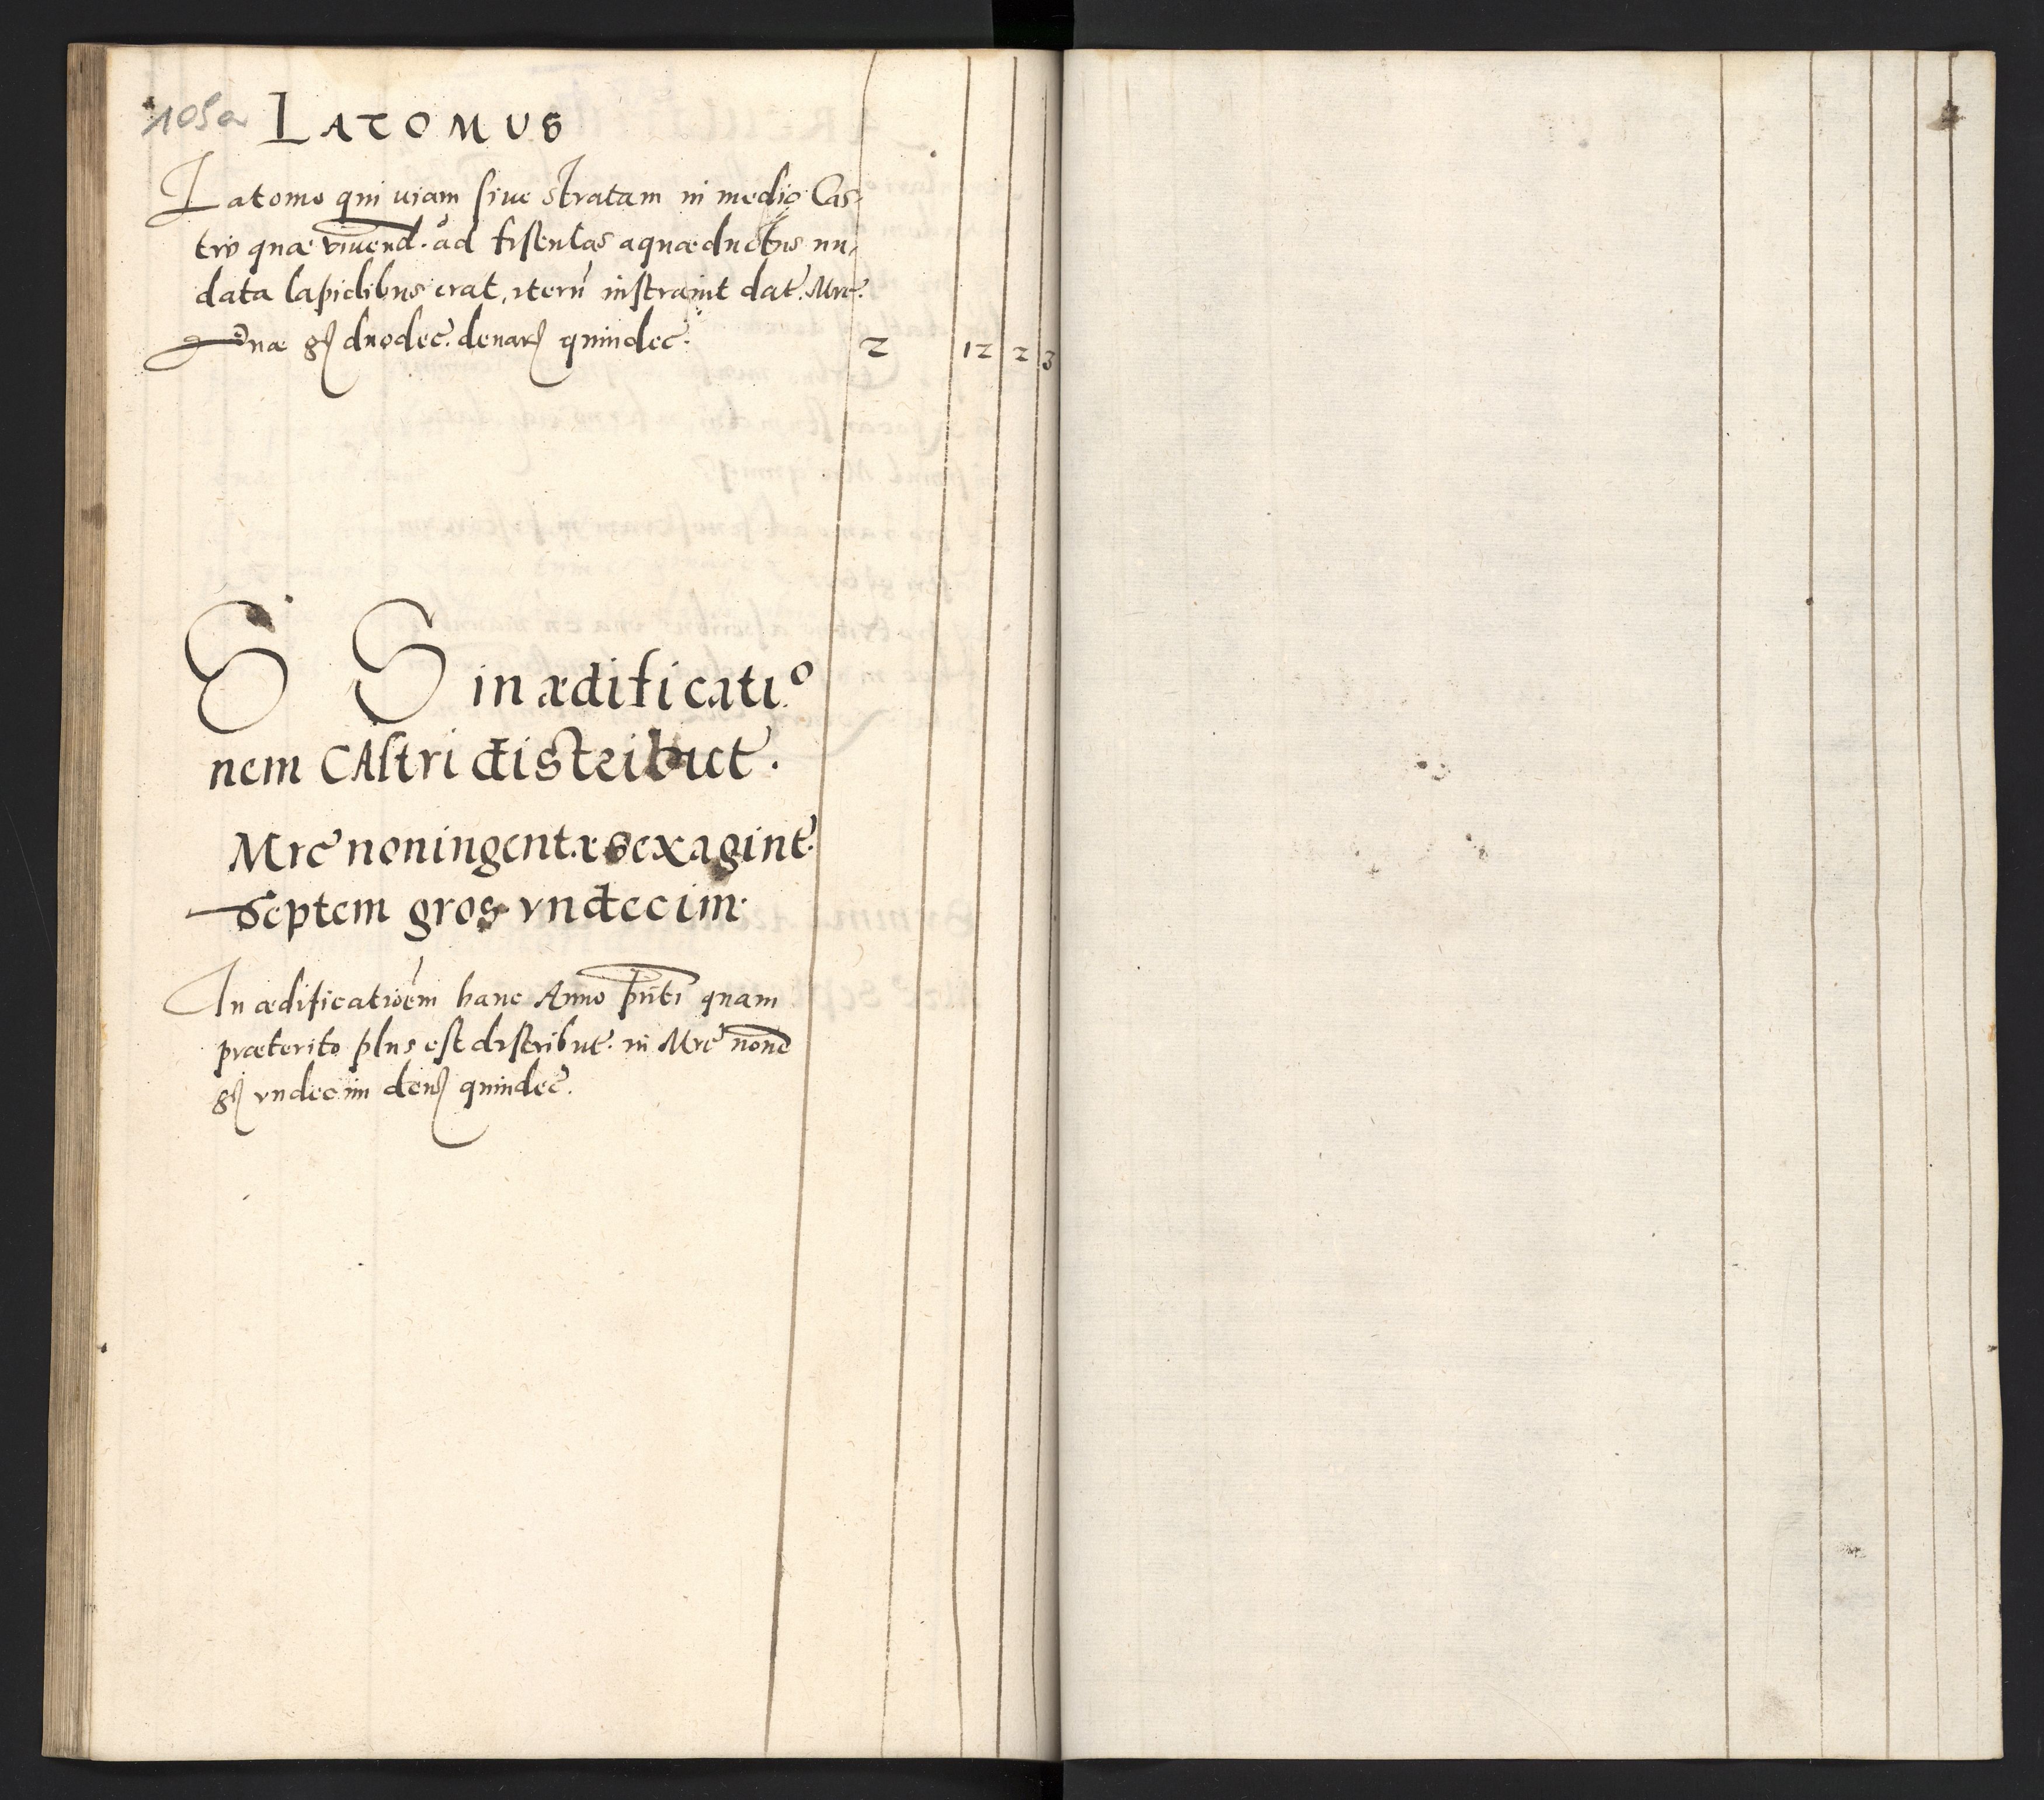 105a LATOMUS
Latomo qui uiam siue stratam in medio Cas-
tro quæ viuend. ad fistulas aquæductus nu,
data lapidibus erat, iterũ instrauit dat. Mrc.
Duæ gſ duodec. denarſ quindec. 2 12 2 3
S S in ædificatio
nem CAstri distribut.
Mrc noningentæ sexagint.
Septem gros vndecim.
In ædificatioem hanc Anno pñti quam
præterito plus est distribut. in Mrc none
gſ vndecim denſ quindec.